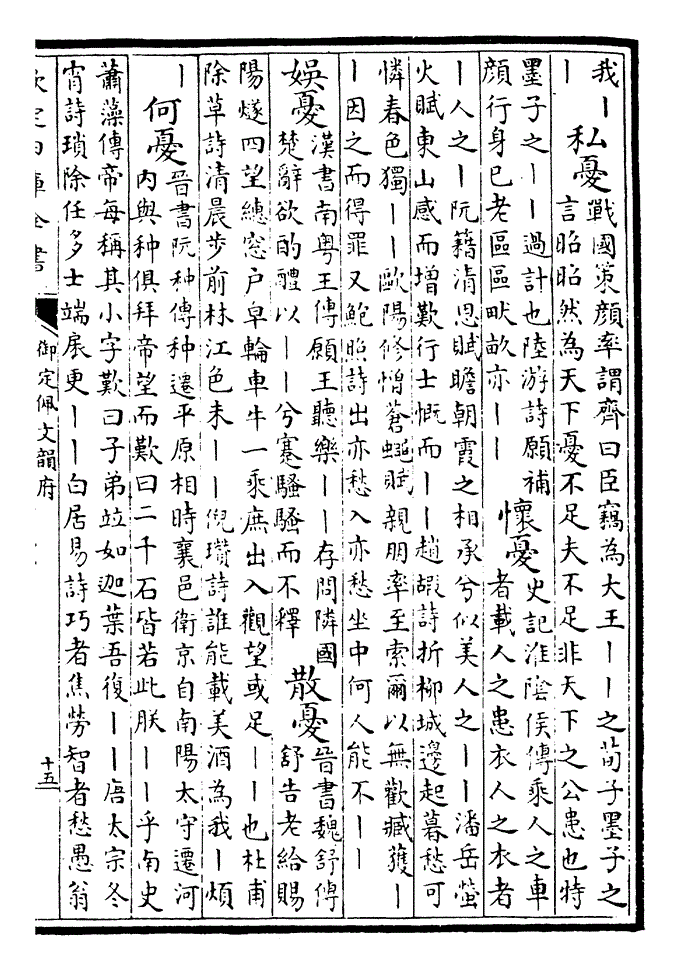 我｜
｜
私憂
戰國策顔率謂齊曰臣竊為大王｜｜之荀子墨子之
言昭昭然為天下憂不足夫不足非天下之公患也特
墨子之｜｜過計也陸游詩願補
顔行身已老區區畎畝亦｜｜
懷憂
史記淮隂侯傳乘人之車
者載人之患衣人之衣者
｜人之｜阮籍清思賦瞻朝霞之相承兮似美人之｜｜潘岳螢
火賦東山感而增歎行士慨而｜｜趙嘏詩折柳城邊起暮愁可
憐春色獨｜｜歐陽修憎蒼蠅賦親朋率至索爾以無歡臧獲｜
｜因之而得罪又鮑照詩出亦愁入亦愁坐中何人能不｜｜
娛憂
漢書南粤王傳願王聽樂｜｜存問隣國
楚辭欲酌醴以｜｜兮蹇騷騷而不釋
散憂
晉書魏舒傳
舒告老給賜
陽燧四望總窓户皁輪車牛一乘庶出入觀望或足｜｜也杜甫
除草詩清晨步前林江色未｜｜倪瓚詩誰能載美酒為我｜煩
｜
何憂
晉書阮种傳种遷平原相時襄邑衛京自南陽太守遷河
内與种俱拜帝望而歎曰二千石皆若此朕｜｜乎南史
蕭藻傳帝每稱其小字歎曰子弟竝如迦葉吾復｜｜唐太宗冬
宵詩瑣除任多士端扆更｜｜白居易詩巧者焦勞智者愁愚翁
欽定四庫全書
御定佩文韻府
十五